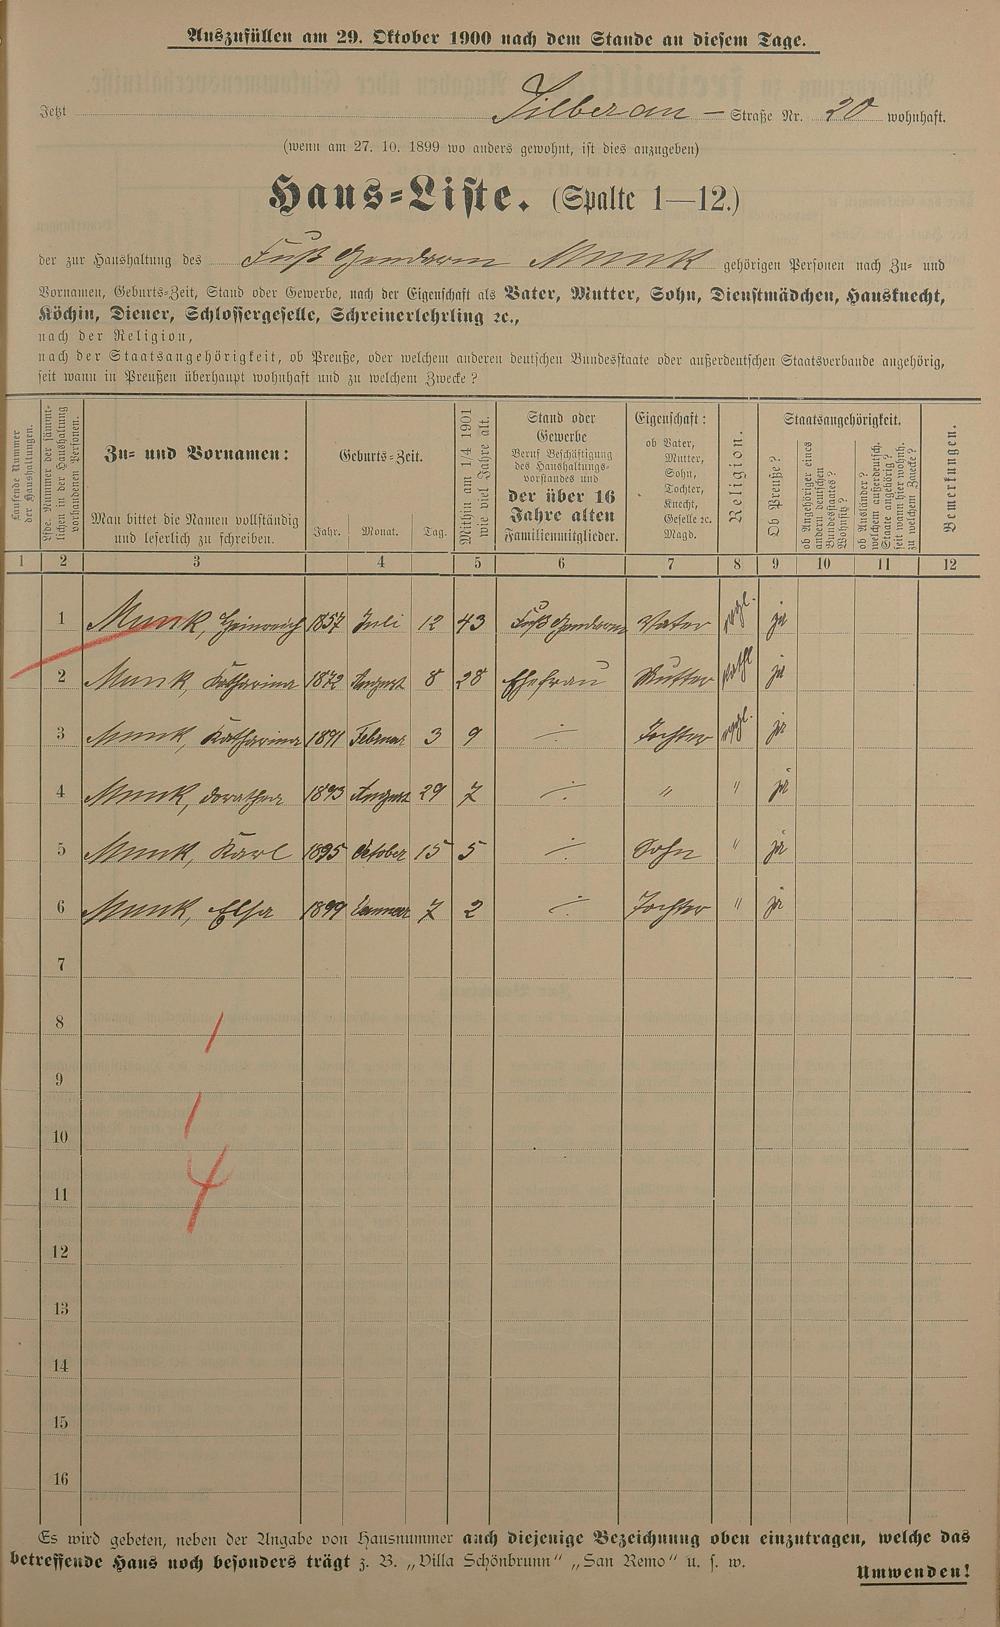 Auszufüllen am 29. Oktober 1900 nach dem Stande an diesem Tage.
Jetzt Silberau – Straße Nr. 20 wohnhaft.
(wenn am 27. 10. 1899 wo anders gewohnt, ist dies anzugeben)
Haus-Liste. (Spalte 1—12.)
der zur Haushaltung des Fuß Gendarm Munk gehörigen Personen nach Zu- und
Vornamen, Geburts-Zeit, Stand oder Gewerbe, nach der Eigenschaft als Vater, Mutter, Sohn, Dienstmädchen, Hausknecht,
Köchin, Diener, Schlossergeselle, Schreinerlehrling ꝛc.,
nach der Religion,
nach der Staatsangehörigkeit, ob Preuße, oder welchem anderen deutschen Bundesstaate oder außerdeutschen Staatsverbande angehörig,
seit wann in Preußen überhaupt wohnhaft und zu welchem Zwecke?
Laufende Nummer der Haushaltungen.
Lfde. Nummer der sämmtlichen in der Haushaltung vorhandenen Personen.
Zu- und Vornamen:
Man bittet die Namen vollständig
und leserlich zu schreiben.
Geburts-Zeit.
Jahr. Monat. Tag.
Mithin am 1/4 1901 wie viel Jahre alt.
Stand oder
Gewerbe
Beruf Beschäftigung
des Haushaltungs-
vorstandes und
der über 16
Jahre alten
Familienmitglieder.
Eigenschaft:
ob Vater,
Mutter,
Sohn,
Tochter,
Knecht,
Geselle ꝛc.
Magd.
Religion.
Staatsangehörigkeit.
Ob Preuße?
ob Angehöriger eines andern deutschen Bundesstaates? Wohnsitz?
ob Ausländer? welchem außerdeutsch. Staate angehörig? seit wann hier wohnh. zu welchem Zwecke?
Bemerkungen.
1 2 3 4 5 6 7 8 9 10 11 12
1 Munk, Heinreich 1857 Juli 12 43 Fuß Gendarm Vater evgl. ja
2 Munk, Katharina 1872 August 8 28 Ehefrau Mutter kathl ja
3 Munk, Katharina 1891 Februar 3 9 ÷ Tochter evgl. ja
4 Munk, Dorathea 1893 August 29 7 ÷ " " ja
5 Munk, Karl 1895 October 15 5 ÷ Sohn " ja
6 Munk, Elsa 1899 Januar 7 2 ÷ Tochter " ja
7
8 1
9
10 1
11 4
12
13
14
15
16
Es wird gebeten, neben der Angabe von Hausnummer auch diejenige Bezeichnung oben einzutragen, welche das
betreffende Haus noch besonders trägt z. B. „Villa Schönbrunn“ „San Remo“ u. s. w.
Umwenden!